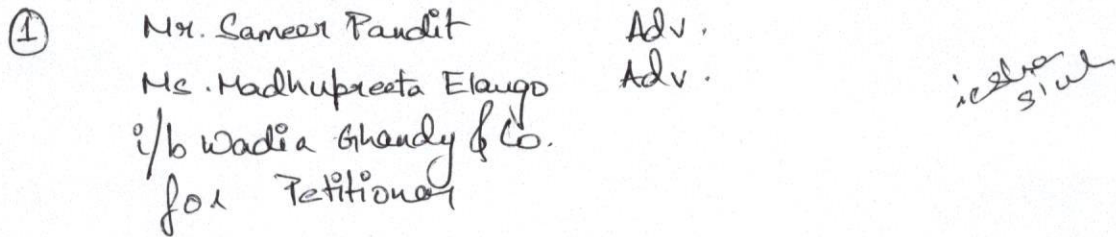 ① Mr. Sameer Pandit Adv.
Ms. Madhupreeta Elango Adv.
i/b Wadia Ghandy & Co.
for Petitioner